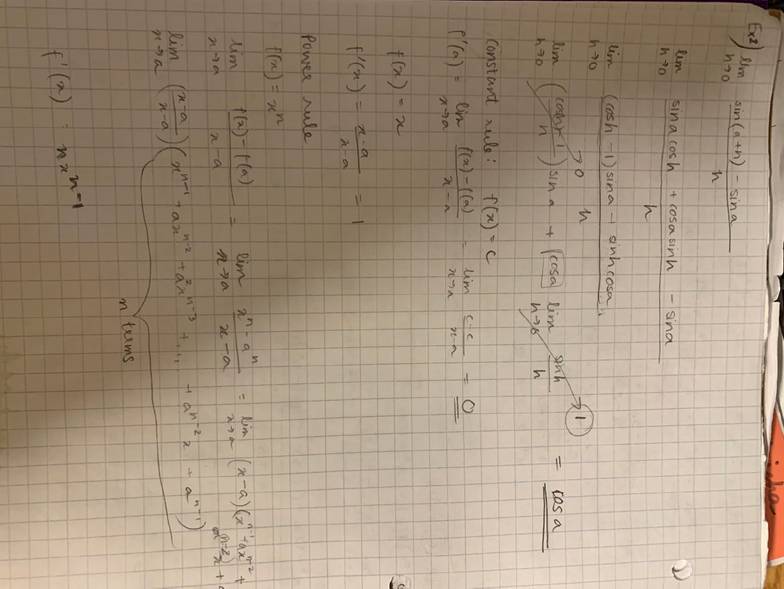 Ex2) lim h→0 sin(a+h) - sina / h
lim h→0 sina cosh + cosa sinh - sina / h
lim h→0 (cosh - 1) sina - sinh cosa / h
lim h→0 (cosh - 1 / h) sina + cosa lim h→0 sinh / h = cosa
0
1
Constant rule: f(x) = c
f'(a) = lim x→a f(x) - f(a) / x - a = lim x→a c - c / x - a = 0
f(x) = x
f'(x) = x - a / x - a = 1
Power rule
f(x) = x^n
lim x→a f(x) - f(a) / x - a = lim x→a x^n - a^n / x - a = lim x→a (x - a)(x^n-1 + ax^n-2 +
a^n-2 x +
lim x→a (x - a / x - a)(x^n-1 + ax^n-2 + a^2 x^n-3 + ... + a^n-2 x + a^n-1)
n terms
f'(x) = n x^n-1